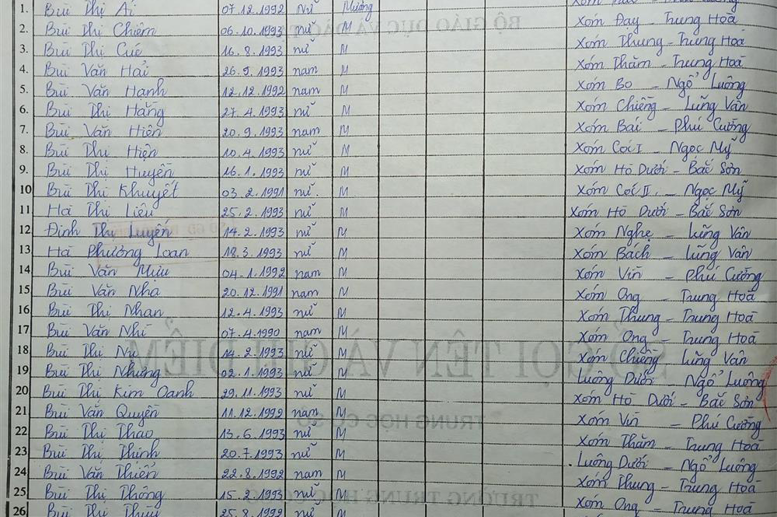 1. Bùi Thị Ái 07.12.1992 Nữ Mường
2. Bùi Thị Chiêm 06.10.1993 nữ M Xóm Đay - Trung Hoà
3. Bùi Thị Cúc 16.8.1993 nữ M Xóm Thung - Trung Hoà
4. Bùi Văn Hải 26.9.1993 nam M Xóm Thăm - Trung Hoà
5. Bùi Văn Hạnh 12.12.1992 nam M Xóm Bo - Ngổ Luông
6. Bùi Thị Hằng 27.4.1993 nữ M Xóm Chiềng - Lũng Vân
7. Bùi Văn Hiên 20.9.1993 nam M Xóm Bái - Phú Cường
8. Bùi Thị Hiện 10.4.1993 nữ M Xóm Cóc I - Ngọc Mỹ
9. Bùi Thị Huyền 16.1.1993 nữ M Xóm Hò Dưới - Bắc Sơn
10 Bùi Thị Khuyết 03.2.1991 nữ. M Xóm Cóc II. - Ngọc Mỹ
11 Hà Thị Liễu 25.2.1993 nữ M Xóm Hò Dưới - Bắc Sơn
12 Đinh Thị Luyến 14.2.1993 nữ M Xóm Nghẹ - Lũng Vân
13 Hà Phương Loan 18.3.1993 nữ M Xóm Bách - Lũng Vân
14 Bùi Văn Mưu 04.1.1992 nam M Xóm Vìn - Phú Cường
15 Bùi Văn Nhạ 20.12.1991 nam M Xóm Ong - Trung Hoà
16 Bùi Thị Nhàn 12.4.1993 nữ M Xóm Thung - Trung Hoà
17 Bùi Văn Nhì 07.4.1990 nam M Xóm Ong - Trung Hoà
18 Bùi Thị Nụ 14.2.1993 nữ M Xóm Chiềng Lũng Vân
19 Bùi Thị Nhung 02.1.1993 nữ M Luông Dưới - Ngổ Luông
20 Bùi Thị Kim Oanh 29.11.1993 nữ M Xóm Hò Dưới - Bắc Sơn
21 Bùi Văn Quyền 11.12.1992 nam M Xóm Vìn - Phú Cường
22 Bùi Thị Thao 13.6.1993 nữ M Xóm Thăm - Trung Hoà
23 Bùi Thị Thinh 20.7.1993 nữ M Luông Dưới - Ngổ Luông
24 Bùi Văn Thiến 22.8.1992 nam M Xóm Thung - Trung Hoà
25 Bùi Thị Thông 15.2.1993 nữ M Xóm Ong - Trung Hoà
26 Bùi Thị Thuỷ 25.8.1992 nữ M